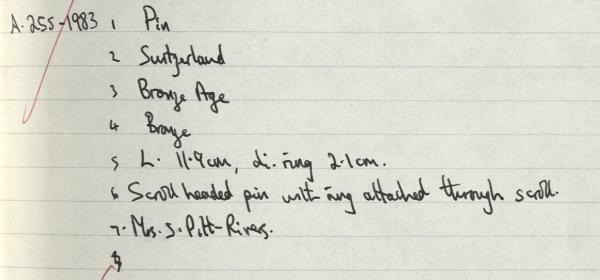 A.255-1983 1 Pin
2 Switzerland
3 Bronze Age
4 Bronze
5 L. 11.9cm, di. ring 2.1cm.
6 Scroll headed pin with ring attached through scroll.
7. Mrs. S. Pitt-Rivers.